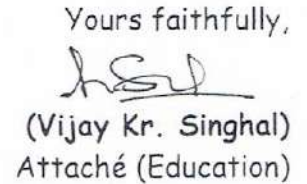 Yours faithfully,
(Vijay Kr. Singhal)
Attaché (Education)